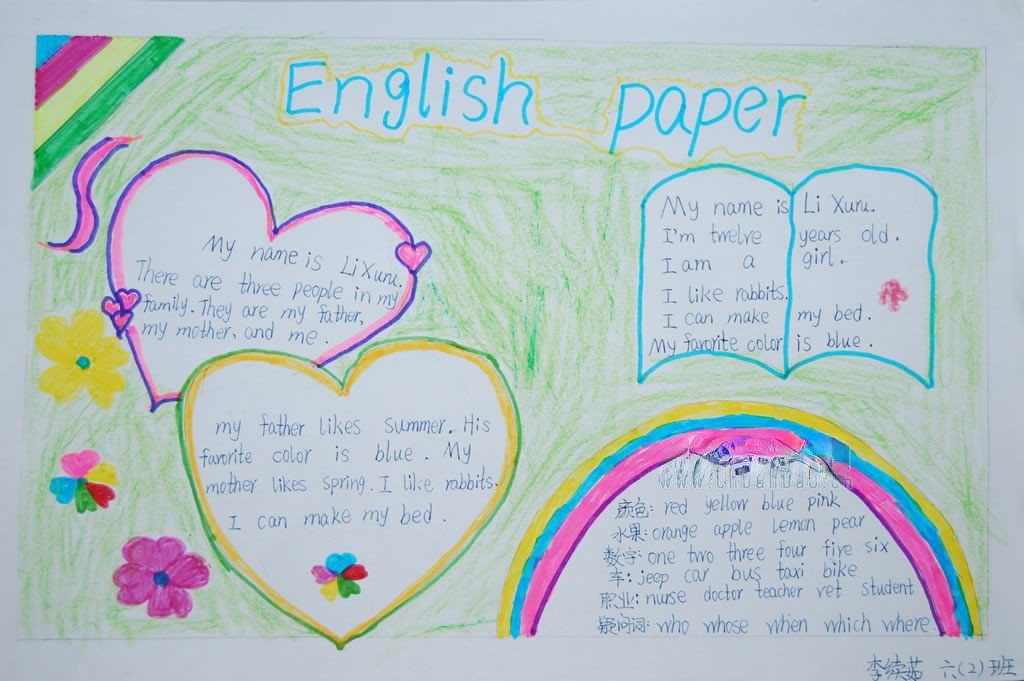 English paper
My name is Li Xuru.
There are three people in my
family. They are my father,
my mother, and me.
my father likes summer. His
favorite color is blue. My
mother likes spring. I like rabbits.
I can make my bed.
My name is Li Xuru.
I'm twelve years old.
I am a girl.
I like rabbits.
I can make my bed.
My favorite color is blue.
颜色: red yellow blue pink
水果: orange apple lemon pear
数字: one two three four five six
车: jeep car bus taxi bike
职业: nurse doctor teacher vet student
疑问词: who whose when which where.
李续茹 六(2)班